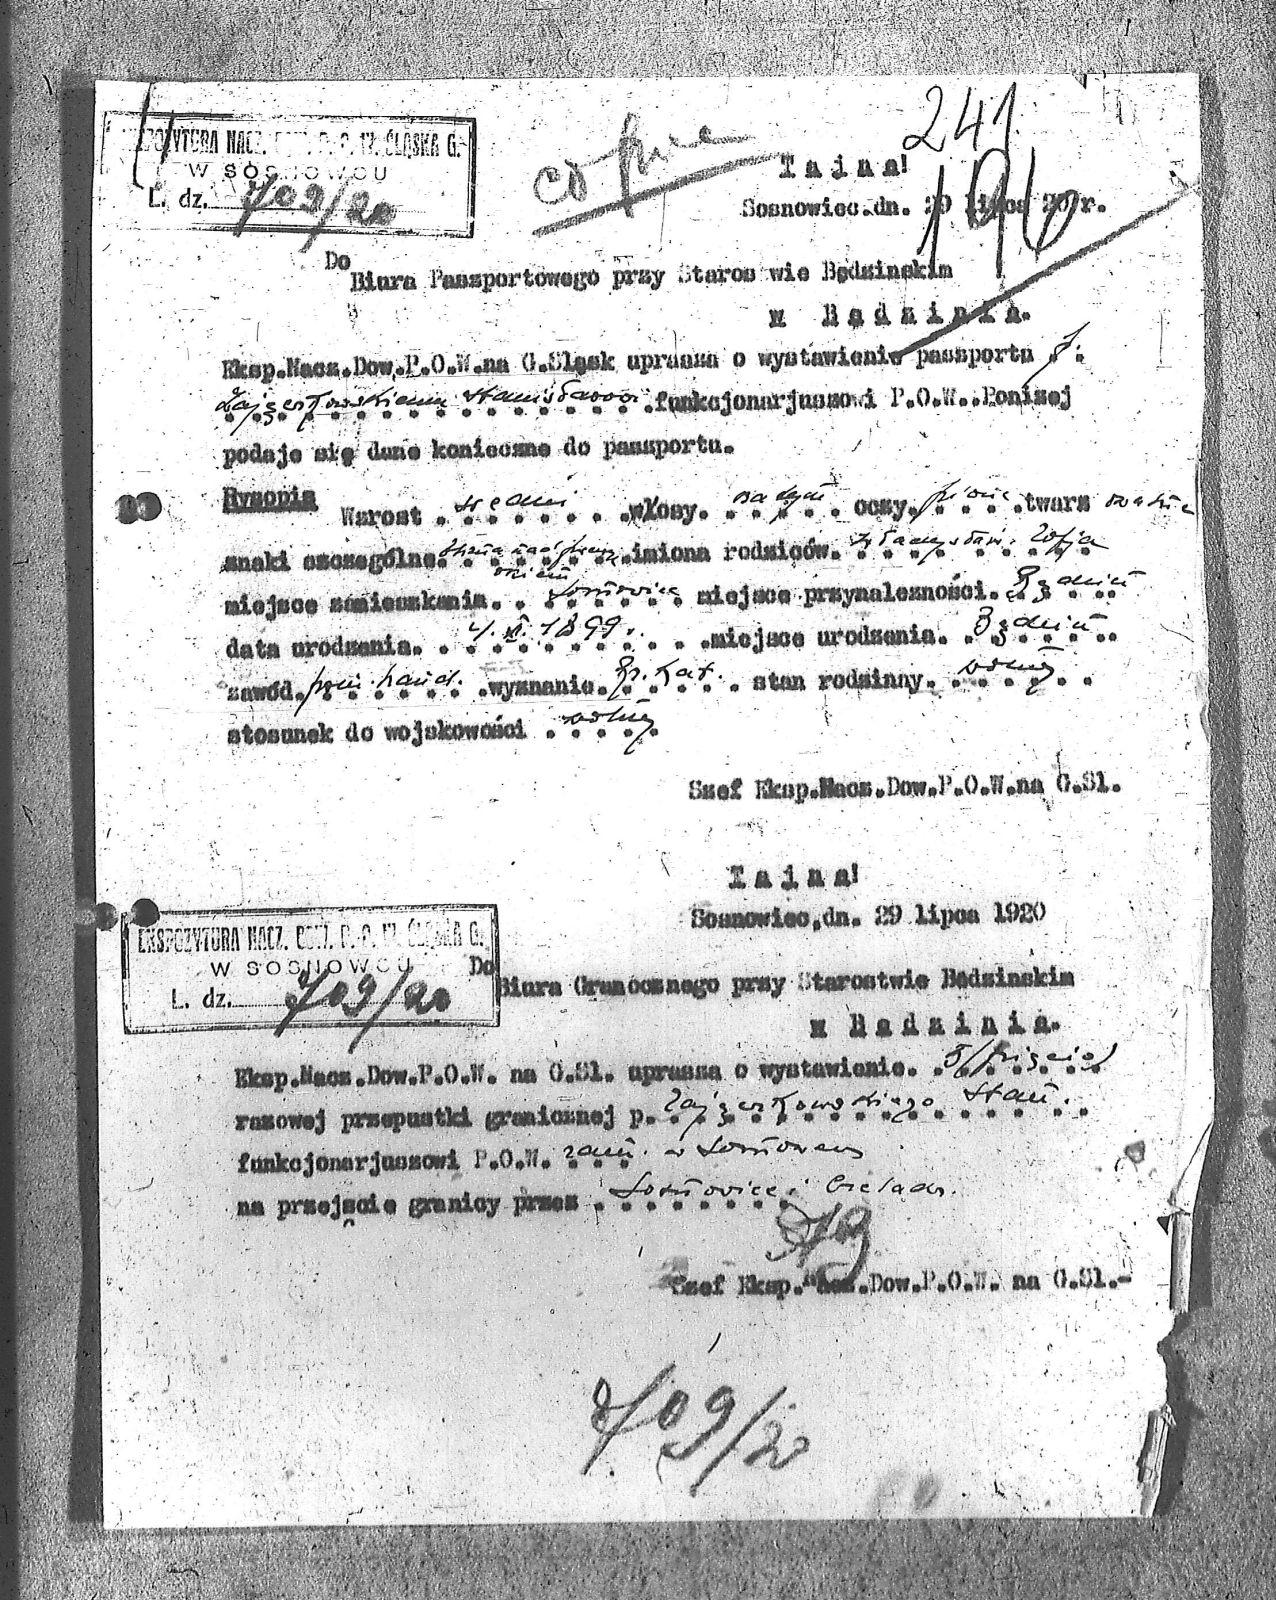 241
EKSPOZYTURA NACZ. DOW. P. O. W. ŚLĄSKA G.
W SOSNOWCU
L. dz. 709/20
T a j n a !
Sosnowiec.dn. 29 lipca 20 r.
Do
Biura Paszportowego przy Staros wie Będzinskim
w B ę d z i n i e.
Eksp.Nacz.Dow.P.O.W.na G.Sląsk uprasza o wystawienie passportu p.
Zajączkowskiemu Stanisławowi funkcjonarjuszowi P.O.W..Poniżej
podaje się dane konieczne do passportu.
Rysopis
Wzrost średni włosy. oczy. piwne twarz
znaki szczególne. imiona rodziców. Zofja
miejsce zamieszkania. Sosnowiec miejsce przynależności. Będzin
data urodzenia. 4. 1899. miejsce urodzenia. Będzin
zawód. wyznanie. Rz. Kat. stan rodzinny. wolny
stosunek do wojskowości wolny
Szef Eksp.Nacz.Dow.P.O.W.na G.Sl.
T a j n a !
Sosnowiec,dn. 29 lipca 1920
EKSPOZYTURA NACZ. DOW. P. O. W. ŚLĄSKA G.
W SOSNOWCU
L. dz. 709/20
Do
Biura Granocznego przy Starostwie Będzinskim
w B ę d z i n i e.
Eksp.Nacz.Dow.P.O.W. na G.Sl. uprasza o wystawienie. 5/pięcio/
razowej przepustki granicznej p. Zajączkowskiego Stan.
funkcjonarjuszowi P.O.W. zam. w Sosnowcu
na przejscie granicy przez Sosnowiec i Czeladz.
Szef Eksp. Nacz.Dow.P.O.W. na G.Sl.-
709/20